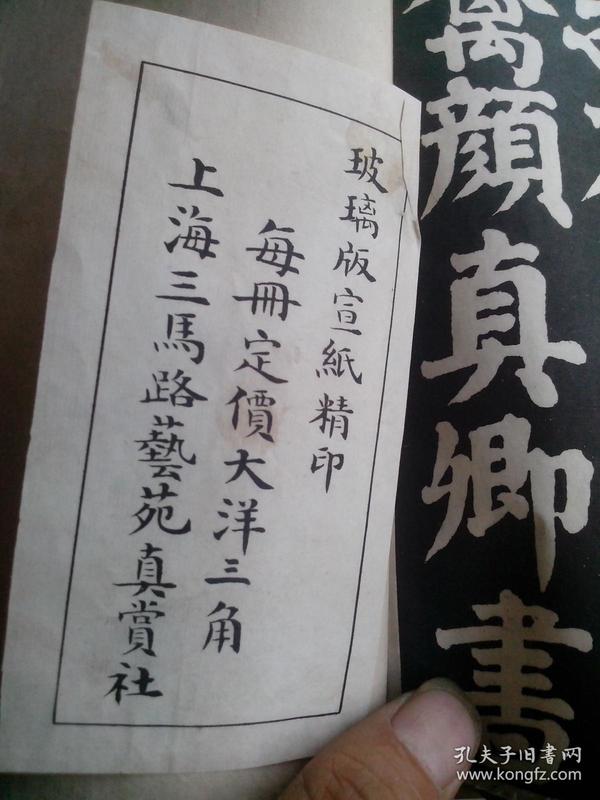 玻璃版宣紙精印
每冊定價大洋三角
上海三馬路藝苑真賞社
顏真卿書
孔夫子旧书网
www.kongfz.com